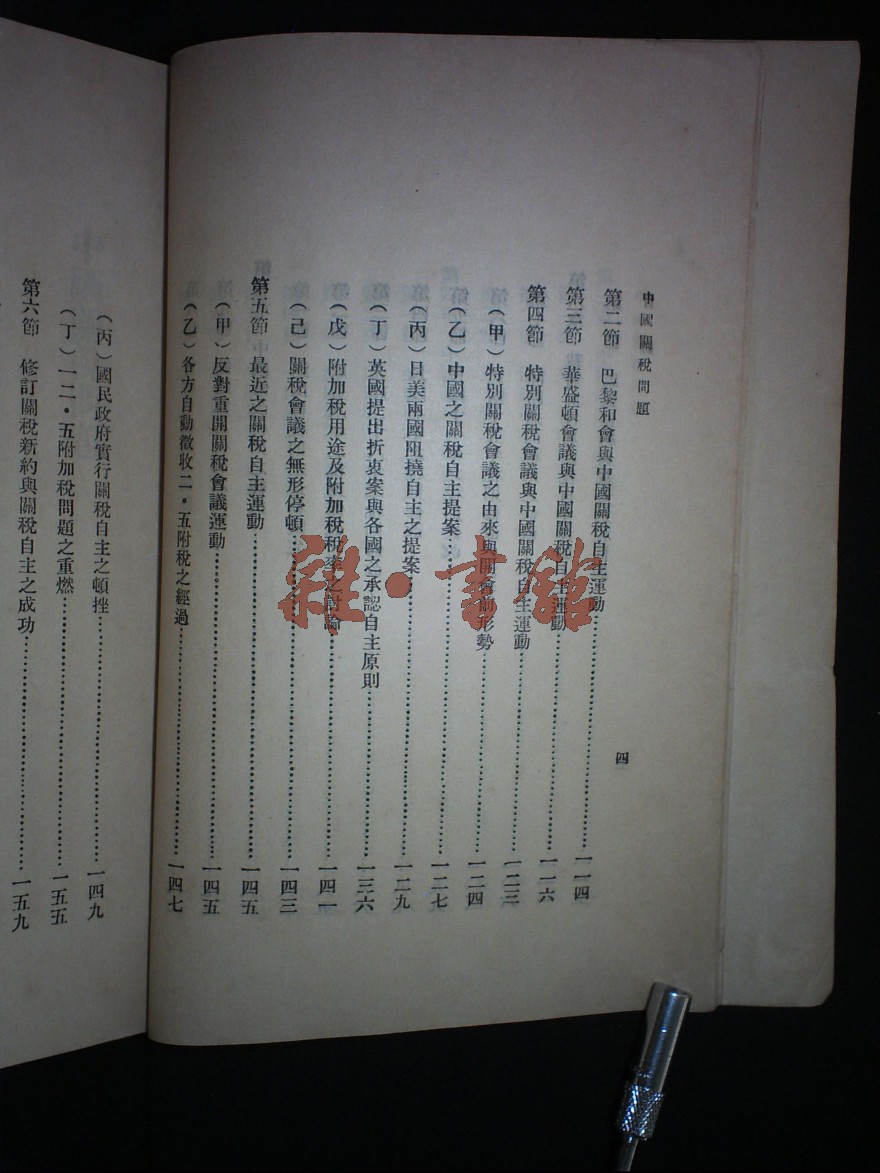 中國關稅問題
四
第二節 巴黎和會與中國關稅自主運動……一一四
第三節 華盛頓會議與中國關稅自主運動……一一六
第四節 特別關稅會議與中國關稅自主運動……一二三
（甲）特別關稅會議之由來與開會前形勢……一二四
（乙）中國之關稅自主提案……一二七
（丙）日美兩國阻撓自主之提案……一二九
（丁）英國提出折衷案與各國之承認自主原則……一三六
（戊）附加稅用途及附加稅稅率之討論……一四一
（己）關稅會議之無形停頓……一四三
第五節 最近之關稅自主運動……一四五
（甲）反對重開關稅會議運動……一四五
（乙）各方自動徵收二・五附稅之經過……一四七
（丙）國民政府實行關稅自主之頓挫……一四九
（丁）一二・五附加稅問題之重燃……一五五
第六節 修訂關稅新約與關稅自主之成功……一五九
雜・書館